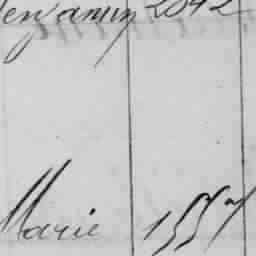 Benjamin 2042
Marie 1557